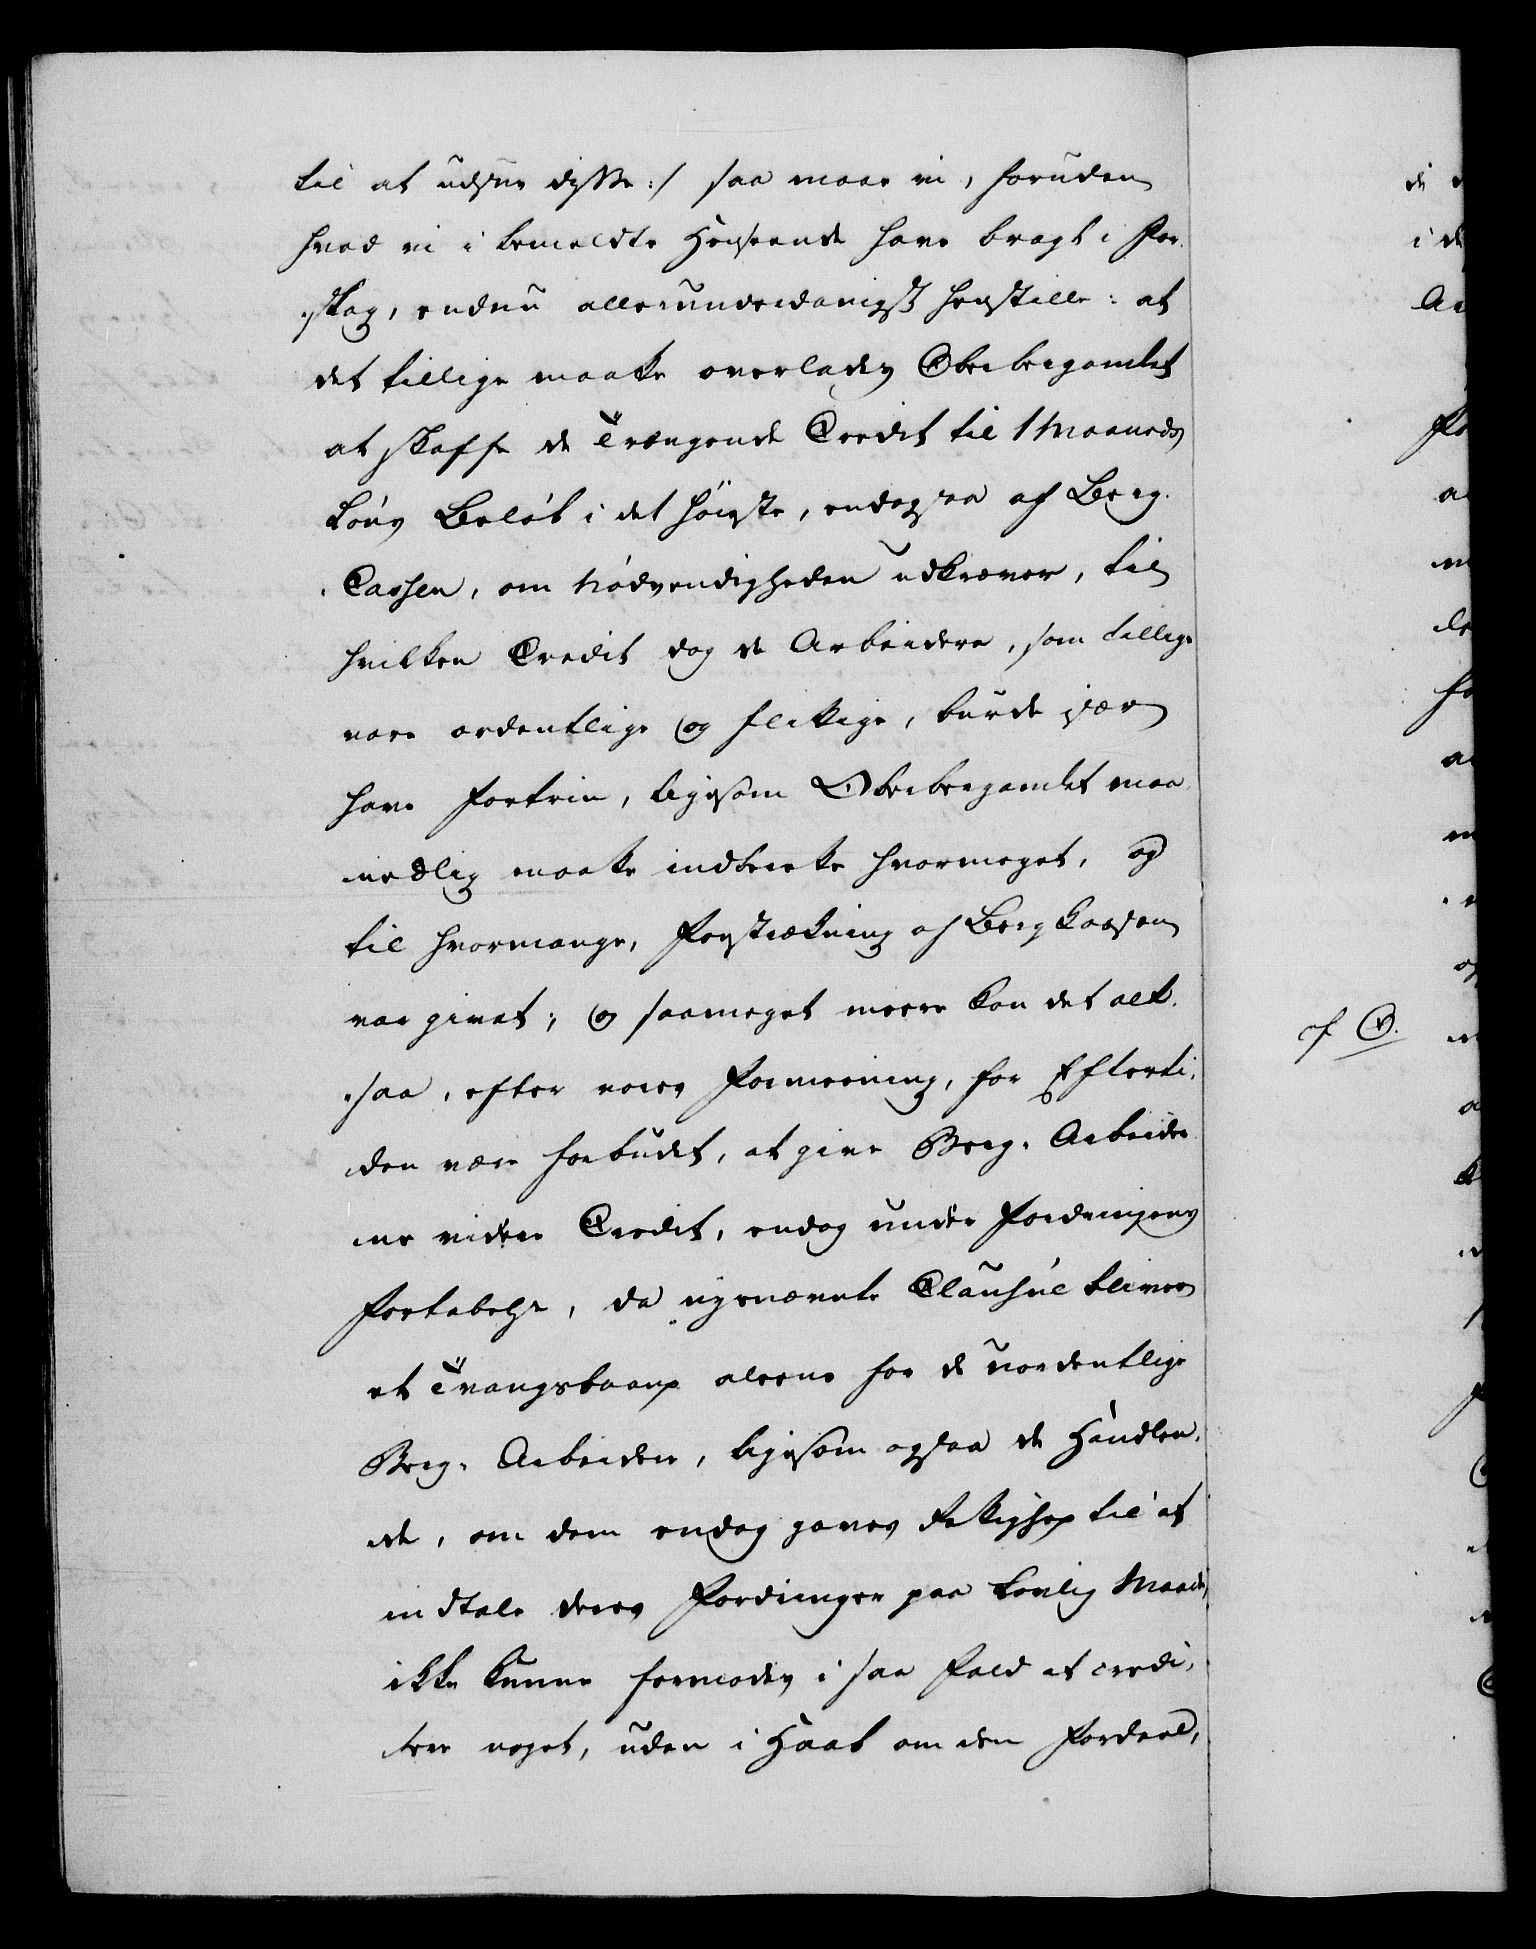 til at udsøe disse :/ saa maae vi, foruden
hvad vi i bemeldte Henseende have bragt i For¬
slag, endnu allerunderdanigst henstille: at
det tillige maatte overlades Oberbergamtet
at skaffe de Trængende Credit til 1 Maaneds
Löns Belöb i det höieste, endogsaa af Berg¬
Cassen, om Nödvendigheden udkræver, til
hvilken Credit dog de Arbeidere, som tillige
vare ordentlige og flittige, burde især
have Fortrin, ligesom Oberbergamtet maa¬
nedlig maatte indberette hvormeget, og
til hvormange, Forstrækning af Bergkassen
var givet; og saameget meere kan det alt¬
saa, efter vores Formeening, for Efterti¬
den være forbudet, at give Berg-Arbeider¬
ne videre Credit, endog under Fordringens
Fortabelse, da nysnævnte Clausul bliver
et Tvangsbaand aleene for de uordentlige
Berg-Arbeidere, ligesom ogsaa de Handlen¬
de, om dem endog gaves Rettighed til at
indtale deres Fordringer paa lovlig Maade,
ikke kunne formodes i saa Fald at credi¬
tere noget, uden i Haab om den Fordeel,